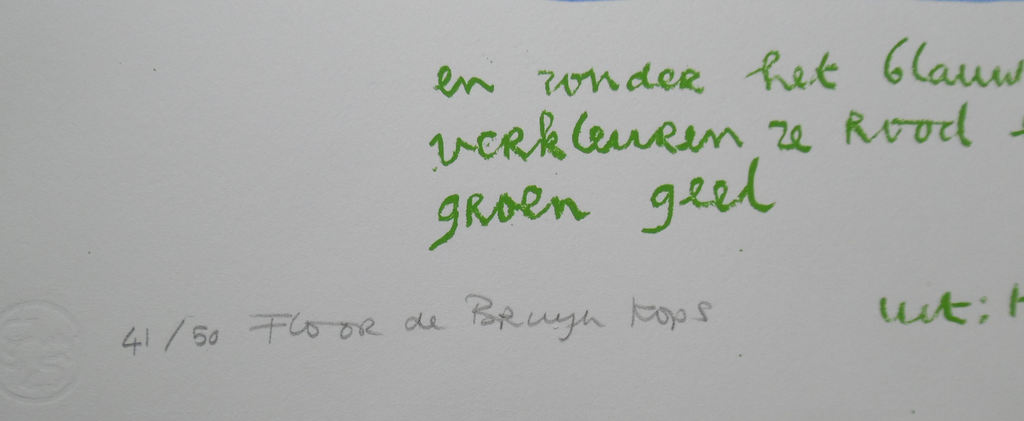 en zonder het blauw
verkleuren ze rood
groen geel
uit:
41/50 Floor de Bruyn Kops